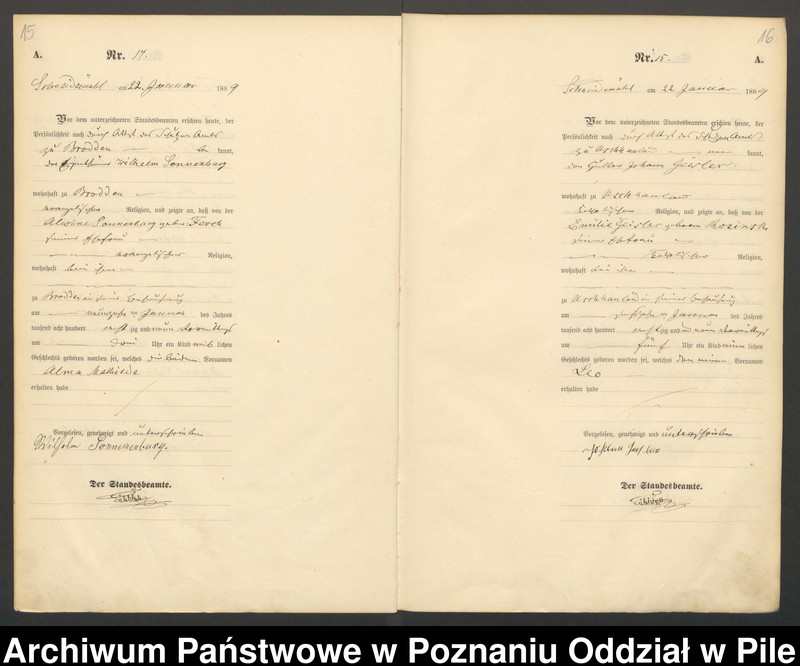 15
A. Nr. 14.
Schneidemühl am 22. Januar 1889
Vor dem unterzeichneten Standesbeamten erschien heute, der
Persönlichkeit nach durch Attest des Schulzen Amts
zu Brodden kannt,
der Eigenthümer Wilhelm Sonnenburg
wohnhaft zu Brodden
evangelischer Religion, und zeigte an, daß von der
Alwine Sonnenburg geborenen
seiner Ehefrau
evangelischer Religion,
wohnhaft bei ihm
zu Brodden in seiner Behausung
am neunzehn ten Januar des Jahres
tausend acht hundert acht zig und neun Vormittags
um drei Uhr ein Kind weib lichen
Geschlechts geboren worden sei, welches die beiden Vornamen
Alma Mathilde
erhalten habe
Vorgelesen, genehmigt und unterschrieben
Wilhelm Sonnenburg.
Der Standesbeamte.
16
Nr. 15. A.
Schneidemühl am 22 Januar 1889
Vor dem unterzeichneten Standesbeamten erschien heute, der
Persönlichkeit nach durch Attest des Schulzen Amts
zu kannt,
der Johann Geisler
wohnhaft zu
katholischer Religion, und zeigte an, daß von der
Emilie Geisler geborenen
seiner Ehefrau
katholischer Religion,
wohnhaft bei ihm
zu in seiner Behausung
am ten Januar des Jahres
tausend acht hundert acht zig und neun Vormittags
um fünf Uhr ein Kind männ lichen
Geschlechts geboren worden sei, welches den einen Vornamen
Leo
erhalten habe
Vorgelesen, genehmigt und unterschrieben
Der Standesbeamte.
Archiwum Państwowe w Poznaniu Oddział w Pile